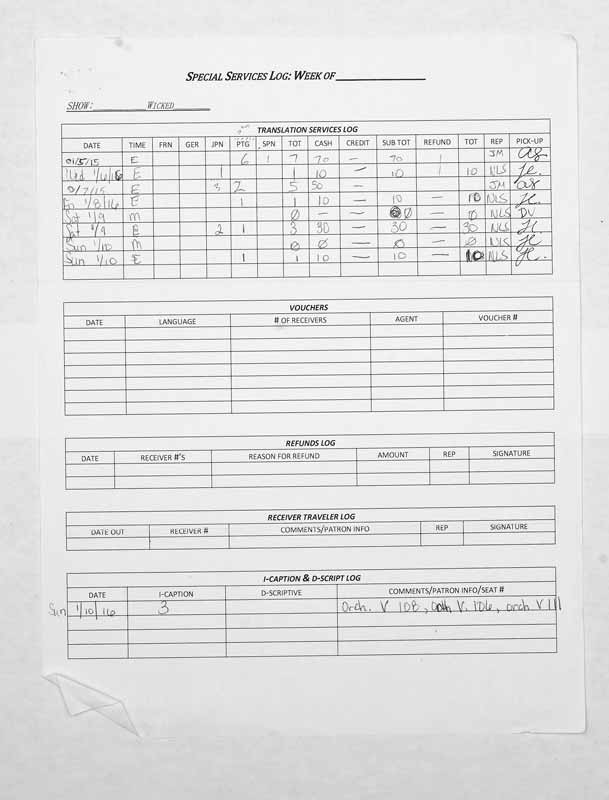 SPECIAL SERVICES LOG: WEEK OF
SHOW: WICKED
TRANSLATION SERVICES LOG
DATE TIME FRN GER JPN PTG SPN TOT CASH CREDIT SUB TOT REFUND TOT REP PICK-UP
01/5/15 E 6 1 7 70 — 70 JM
Wed 1/6/16 E 1 1 10 — 10 10 NLS
01/7/15 E 3 2 5 50 — JM
Fri 1/8/16 E 1 1 10 — 10 — 10 NLS
Sat 1/9 m Ø — — Ø — Ø NLS DV
Sat 1/9 E 2 1 3 30 — 30 — 30 NLS
Sun 1/10 m Ø Ø — Ø — Ø NLS
Sun 1/10 E 1 1 10 — 10 — 10 NLS
VOUCHERS
DATE LANGUAGE # OF RECEIVERS AGENT VOUCHER #
REFUNDS LOG
DATE RECEIVER #'S REASON FOR REFUND AMOUNT REP SIGNATURE
RECEIVER TRAVELER LOG
DATE OUT RECEIVER # COMMENTS/PATRON INFO REP SIGNATURE
I-CAPTION & D-SCRIPT LOG
DATE I-CAPTION D-SCRIPTIVE COMMENTS/PATRON INFO/SEAT #
Sun 1/10/16 3 Orch. V 108, orch V. 106, orch V 111